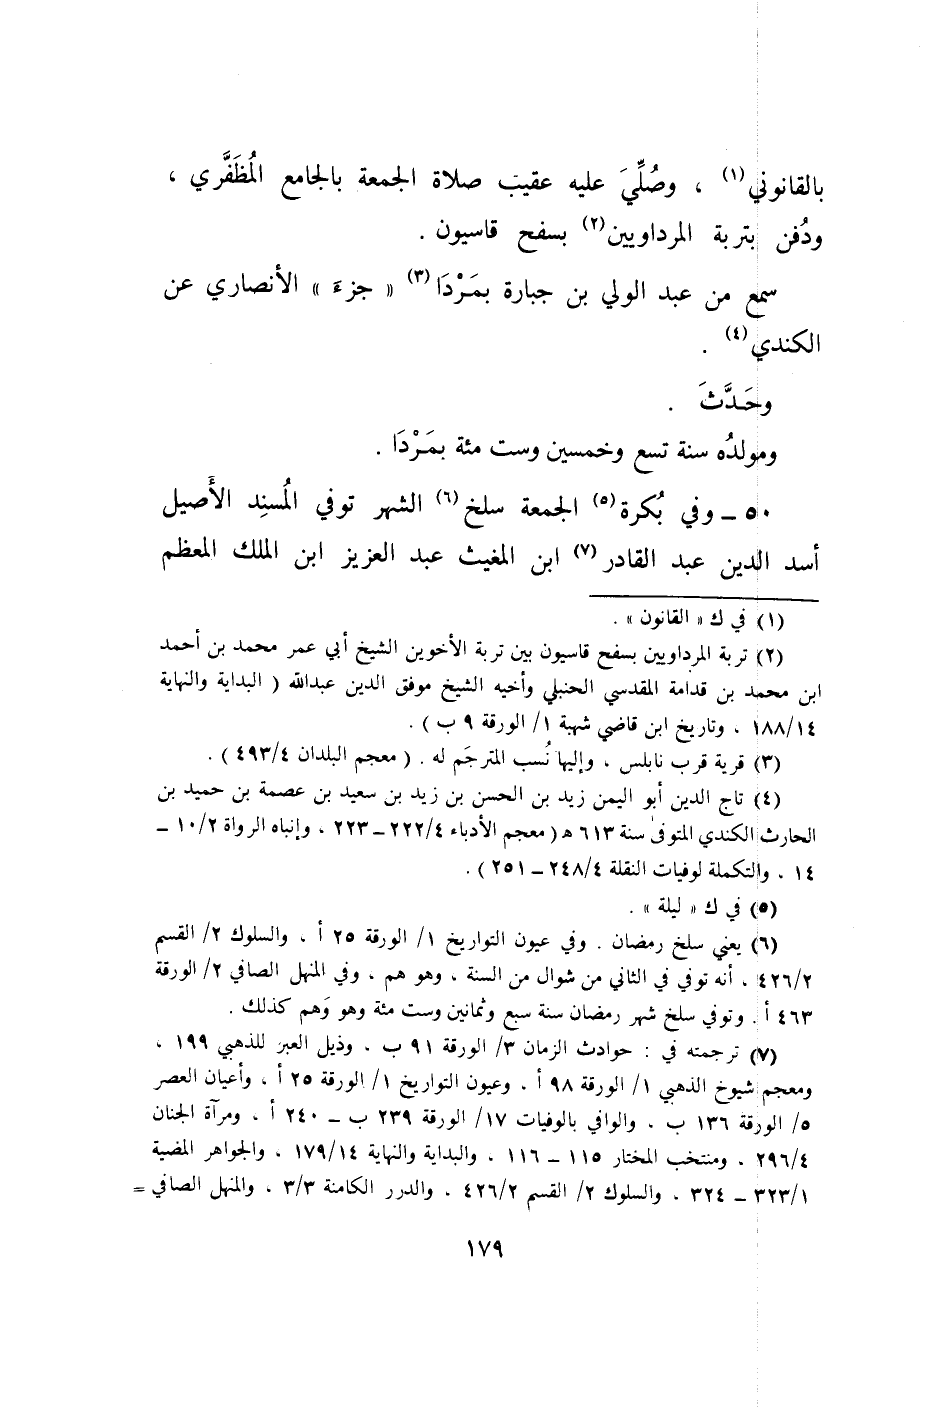 بالقانوني(١) ، وصُلِّيَ عليه عقيب صلاة الجمعة بالجامع المُظَفَّري ،
ودُفن بتربة المرداويين(٢) بسفح قاسيون .
سمع من عبد الولي بن جبارة بمَرْدَا(٣) « جزء » الأنصاري عن
الكندي(٤) .
وحَدَّثَ .
ومولدُه سنة تسع وخمسين وست مئة بمَرْدَا .
٥٠ ـ وفي بُكرة(٥) الجمعة سلخ(٦) الشهر توفي المُسنِد الأَصيل
أسد الدين عبد القادر(٧) ابن المغيث عبد العزيز ابن الملك المعظم
(١) في ك « القانون » .
(٢) تربة المرداويين بسفح قاسيون بين تربة الأخوين الشيخ أبي عمر محمد بن أحمد
ابن محمد بن قدامة المقدسي الحنبلي وأخيه الشيخ موفق الدين عبدالله ( البداية والنهاية
١٨٨/١٤ ، وتاريخ ابن قاضي شهبة ١/ الورقة ٩ ب ) .
(٣) قرية قرب نابلس ، وإليها نُسب المترجَم له . ( معجم البلدان ٤٩٣/٤ ) .
(٤) تاج الدين أبو اليمن زيد بن الحسن بن زيد بن سعيد بن عصمة بن حميد بن
الحارث الكندي المتوفىٰ سنة ٦١٣ هـ ( معجم الأدباء ٢٢٢/٤ ـ ٢٢٣ ، وإنباه الرواة ١٠/٢ ـ
١٤ ، والتكملة لوفيات النقلة ٢٤٨/٤ ـ ٢٥١ ) .
(٥) في ك « ليلة » .
(٦) يعني سلخ رمضان . وفي عيون التواريخ ١/ الورقة ٢٥ أ ، والسلوك ٢/ القسم
٤٢٦/٢ ، أنه توفي في الثاني من شوال من السنة ، وهو هم ، وفي المنهل الصافي ٢/ الورقة
٤٦٣ أ . وتوفي سلخ شهر رمضان سنة سبع وثمانين وست مئة وهو وَهم كذلك .
(٧) ترجمته في : حوادث الزمان ٣/ الورقة ٩١ ب ، وذيل العبر للذهبي ١٩٩ ،
ومعجم شيوخ الذهبي ١/ الورقة ٩٨ أ ، وعيون التواريخ ١/ الورقة ٢٥ أ ، وأعيان العصر
٥/ الورقة ١٣٦ ب ، والوافي بالوفيات ١٧/ الورقة ٢٣٩ ب ـ ٢٤٠ أ ، ومرآة الجنان
٢٩٦/٤ ، ومنتخب المختار ١١٥ ـ ١١٦ ، والبداية والنهاية ١٧٩/١٤ ، والجواهر المضية
٣٢٣/١ ـ ٣٢٤ ، والسلوك ٢/ القسم ٤٢٦/٢ ، والدرر الكامنة ٣/٣ ، والمنهل الصافي =
١٧٩